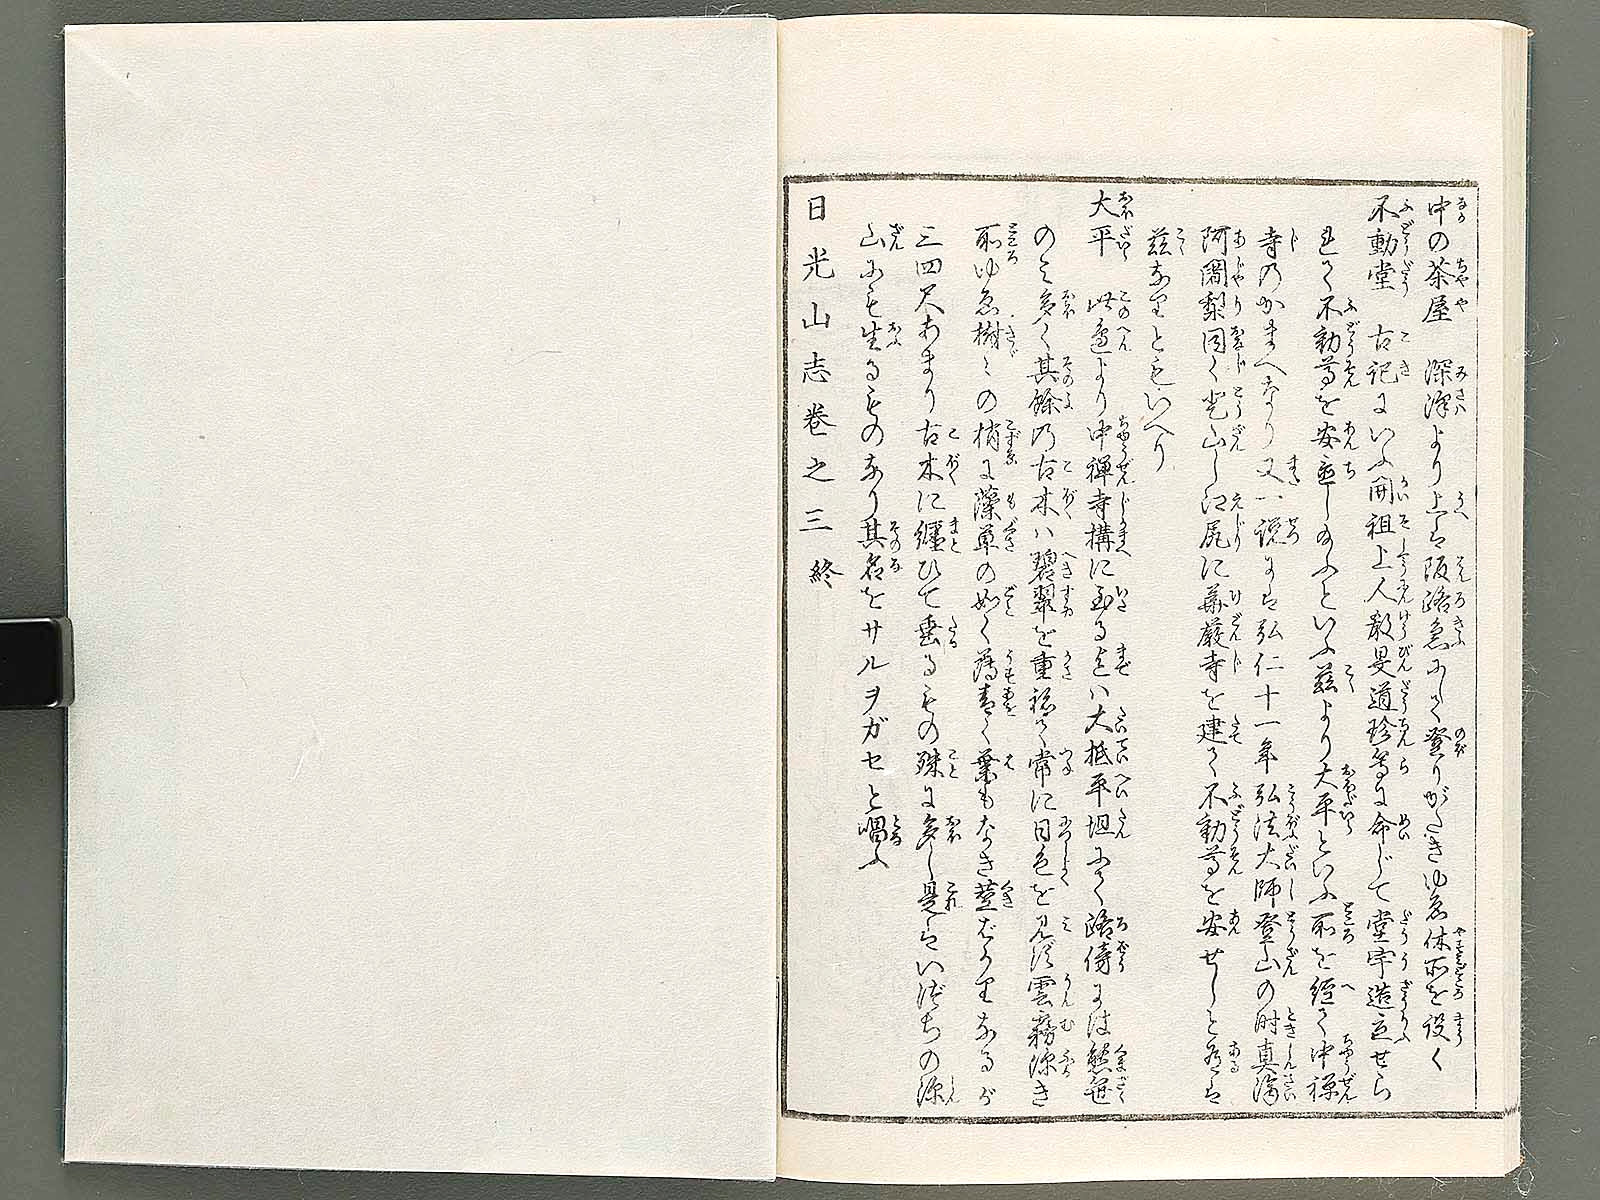 中の茶屋　深澤より上は阪路急にして登りがたきゆゑ休所を設く
不動堂　古記にいふ開祖上人教旻道珍等に命じて堂宇造立せら
れて不動尊を安置し給ふといふ茲より大平といふ所を經て中禪
寺のかまへなり又一説には弘仁十一年弘法大師登山の時真濟
阿闍梨同く登山し江尻に華嚴寺を建て不動尊を安せしと有は
茲なりともいへり
大平　此邉より中禪寺構に至る迄は大抵平坦にて路傍には熊笹
のみ多く其餘の古木は碧翠を重ねて常に日色を見ず雲霧深き
所ゆゑ樹々の梢に藻草の如く薄青く葉もなき莖ばかりなるが
三四尺あまり古木に纒ひて垂るもの殊に多し是はいづちの深
山にも生るものなり其名をサルヲガセと唱ふ
日光山志卷之三終